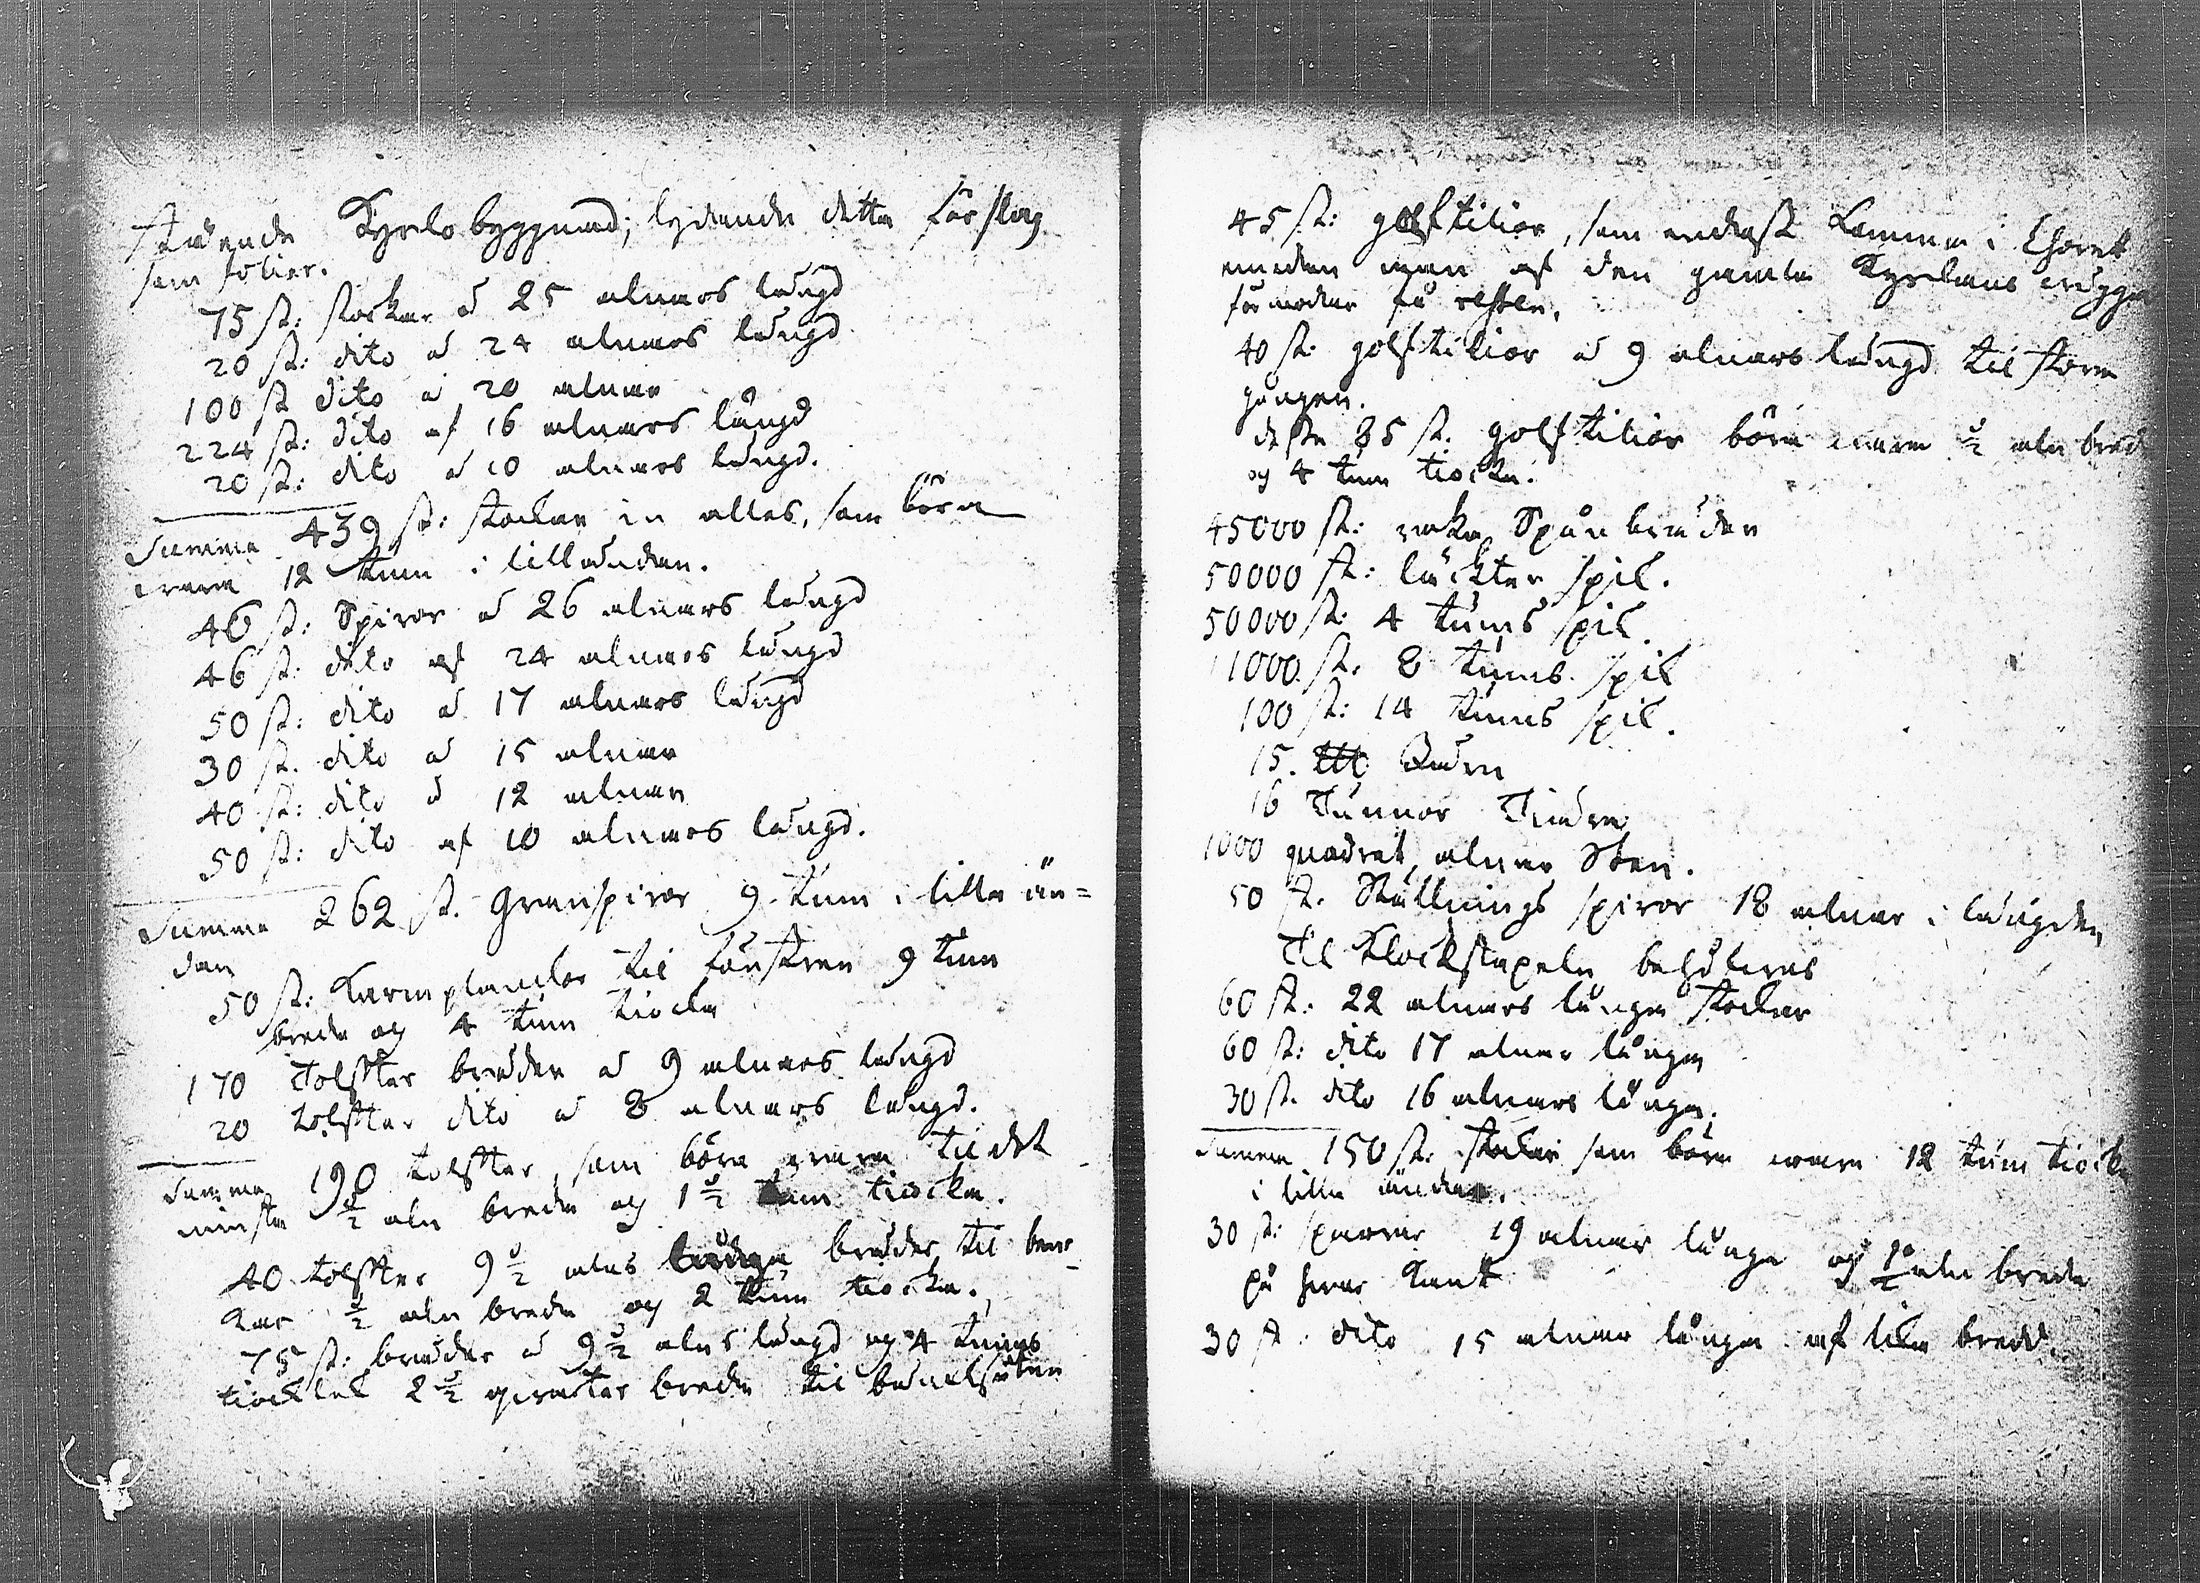 stående Kyrko byggnad; lydande detta förslag
som följer.
75 st: stockar á 25 alnars längd
20 st: dito á 24 alnars längd
100 st dito á 20 alnar
224 st: dito af 16 alnars längd
20 st: dito á 10 alnars längd.
Summa 439 st: stockar in alles, som böra
wara 12 tum i lilländan.
46 st: Spiror á 26 alnars längd
46 st: dito af 24 alnars längd
50 st: dito á 17 alnars längd
30 st. dito á 15 alnar
40 st: dito á 12 alnar
50 st: dito af 10 alnars längd.
Summa 262 st. Granspiror 9 tum i lilla än=
dan
50 st: Karmplankor til fönstren 9 tum
breda og 4 tum tiocka
170 Tolfter bräder á 9 alnars längd
20 tolfter dito á 8 alnars längd.
Summa 190 tolfter, som böra wara til det
minsta ½ aln breda og 1½ tum tiocka.
40 tolfter 9½ alns långa bräder til bänc-
kar ½ aln breda og 2 tum tiocka.
75 st: bräder á 9½ alns längd og 4 tums
tiocklek 2½ qwarter breda til
45 st: golftilior, som endast komma i Choret
emedan man af den gamla Kyrckans
förmodar få resten.
40 st. golftilior á 9 alnars längd til stora
gången.
desse 85 st. golftilior böra wara ½ aln breda
og 4 tum tiocka.
45000 st: raka Spån bräder
50000 st: läckter spik.
50000 st. 4 tums spik.
11000 st: 8 tums spik
100 st: 14 tums spik.
15.
16 Tunnor Tiära
1000 quadrat alnar Sten.
50 st. Ställnings spiror 18 alnar i längden
Til Klockstapeln behöfves
60 st: 22 alnars långa stockar
60 st: dito 17 alnar långa
30 st. dito 16 alnars långa.
Summa 150 st: stockar som böra wara 12 tum tiocka
i lilla ändan.
30 st: sparrar 19 alnar långa og ½ aln breda
på hvar Kant
30 st. dito 15 alnar långa af lika bredd.